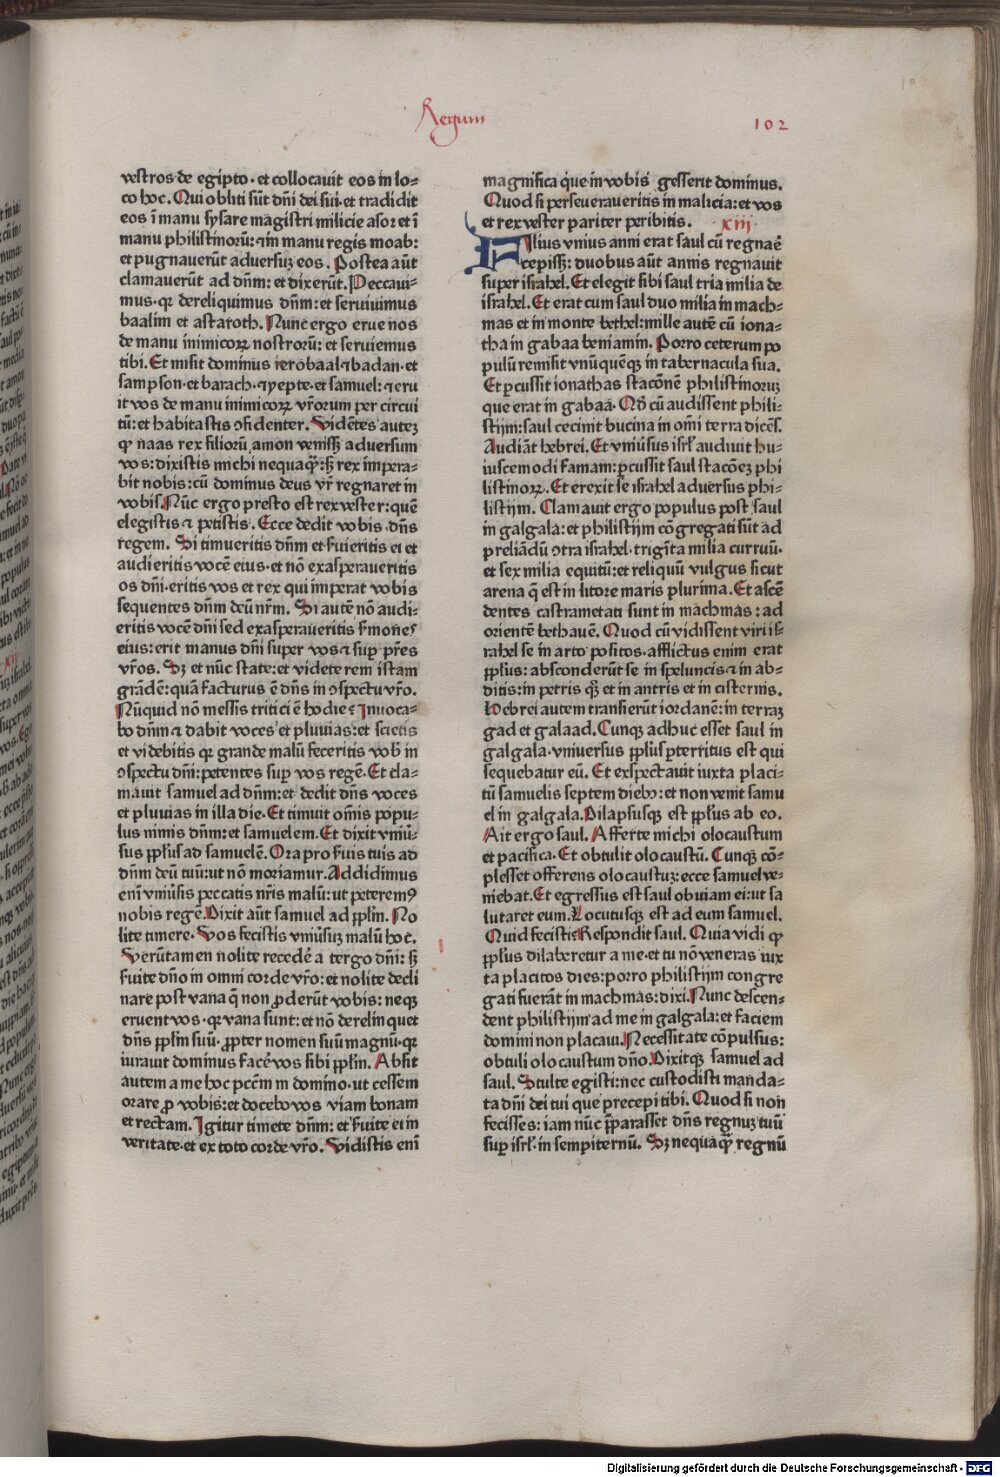 Regum
102
vestros de egipto· et collocavit eos in lo⸗
co hoc. Qui obliti sūt dn̄i dei sui· et tradidit
eos ī manu sysare magistri milicie asor: et ī
manu philistinorū: ⁊ in manu regis moab:
et pugnaverūt adversuʒ eos. Postea aūt
clamaverūt ad dn̄m: et dixerūt. Peccavi⸗
mus· qꝛ dereliquimus dn̄m: et servivimus
baalim et astaroth. Nunc ergo erue nos
de manu inimicoꝝ nostrorū: et serviemus
tibi. Et misit dominus ierobaal ⁊ badan· et
sampson· et barach· ⁊ yepte· et samuel: ⁊ eru
it vos de manu inimicoꝝ vr̄orum per circui
tū: et habitastis ꝯfidenter. Vidētes auteʒ
ꝙ naas rex filiorū amon venissʒ adversum
vos: dixistis michi nequaꝙ̄: sʒ rex impera⸗
bit nobis: cū dominus deus vr̄ regnaret in
vobis. Nūc ergo presto est rex vester: quē
elegistis ⁊ petistis. Ecce dedit vobis· dn̄s
regem. Si timueritis dn̄m et s̄vieritis ei et
audieritis vocē eius· et nō exasperaveritis
os dn̄i· eritis vos et rex qui imperat vobis
sequentes dn̄m deū nr̄m. Si autē nō audi⸗
eritis vocē dn̄i sed exasperaveritis s̄mones
eius: erit manus dn̄i super vos ⁊ suꝑ pr̄es
vr̄os. Sʒ et nūc state: et videte rem istam
grādē: quā facturus ē dn̄s in ꝯspectu vr̄o.
Nūquid nō messis tritici ē hodie? Invoca⸗
bo dn̄m ⁊ dabit voces et pluvias: et scietis
et videbitis qꝛ grande malū feceritis vob̄ in
ꝯspectu dn̄i: petentes suꝑ vos regē. Et cla⸗
mavit samuel ad dn̄m: et dedit dn̄s voces
et pluvias in illa die. Et timuit om̄is popu⸗
lus nimis dn̄m: et samuelem. Et dixit univ̄⸗
sus pp̄lus ad samuelē. Ora pro s̄vis tuis ad
dn̄m deū tuū: ut nō moriamur. Addidimus
enī univ̄sis peccatis nr̄is malū: ut peteremꝰ
nobis regē. Dixit aūt samuel ad pp̄lm. No
lite timere. Vos fecistis univ̄suʒ malū hoc.
Verūtamen nolite recedē a tergo dn̄i: sʒ
s̄vite dn̄o in omni corde vr̄o: et nolite decli
nare post vana q̄ non ꝓderūt vobis: neqʒ
eruent vos· qꝛ vana sunt: et nō derelinquet
dn̄s pp̄lm suū· ꝓpter nomen suū magnū· qꝛ
iuravit dominus facē vos sibi pp̄lm. Absit
autem a me hoc pcc̄m in domino· ut cessem
orare ꝓ vobis: et docebo vos viam bonam
et rectam. Igitur timete dn̄m: et s̄vite ei in
veritate· et ex toto corde vr̄o. Vidistis enī
magnifica que in vobis gesserit dominus.
Quod si perseveraveritis in malicia: et vos
et rex vester pariter peribitis. xiii
Filius unius anni erat saul cū regnaē
cepissʒ: duobus aūt annis regnavit
super israhel. Et elegit sibi saul tria milia de
israhel. Et erat cum saul duo milia in mach⸗
mas et in monte bethel: mille autē cū iona⸗
tha in gabaa beniamin. Porro ceterum po
pulū remisit unūquēqʒ in tabernacula sua.
Et ꝑcussit ionathas stacōnē philistinoruʒ
que erat in gabaa. Qd̄ cū audissent phili⸗
stijm: saul cecinit bucina in om̄i terra dicēs.
Audiāt hebrei. Et univ̄sus isrl̄ audivit hu⸗
iuscemodi famam: ꝑcussit saul stacōeʒ phi
listinoꝝ. Et erexit se israhel adversus phi⸗
listijm. Clamavit ergo populus post saul
in galgala: et philistijm cōgregati sūt ad
preliādū ꝯtra israhel· triginta milia curruū·
et sex milia equitū: et reliquū vulgus sicut
arena q̄ est in litore maris plurima. Et ascē
dentes castrametati sunt in machmas: ad
orientē bethavē. Quod cū vidissent viri is⸗
rahel se in arto positos· afflictus enim erat
pp̄lus: absconderūt se in speluncis ⁊ in ab⸗
ditis: in petris qʒ et in antris et in cisternis.
Hebrei autem transierūt iordanē: in terraʒ
gad et galaad. Cunqʒ adhuc esset saul in
galgala· universus pp̄lus ꝑterritus est qui
sequebatur eū. Et exspectavit iuxta placi⸗
tū samuelis septem diebꝫ: et non venit samu
el in galgala. Dilapsusqʒ est pp̄lus ab eo.
Ait ergo saul. Afferte michi olocaustum
et pacifica. Et obtulit olocaustū. Cunqʒ cō⸗
plesset offerens olocaustuʒ: ecce samuel ve⸗
niebat. Et egressus est saul obviam ei: ut sa
lutaret eum. Locutusqʒ est ad eum samuel.
Quid fecisti? Respondit saul. Quia vidi ꝙ
pp̄lus dilaberetur a me· et tu nō veneras iux
ta placitos dies: porro philistijm congre
gati fuerāt in machmas: dixi. Nunc descen⸗
dent philistijm ad me in galgala: et faciem
domini non placavi. Necessitate cōpulsus:
obtuli olocaustum dn̄o. Dixitqʒ samuel ad
saul. Stulte egisti: nec custodisti manda⸗
ta dn̄i dei tui que precepi tibi. Quod si non
fecisses: iam nūc p̄parasset dn̄s regnuʒ tuū
suꝑ isrl̄· in sempiternū. Sʒ nequaꝙ̄ regnū
Digitalisierung gefördert durch die Deutsche Forschungsgemeinschaft - DFG